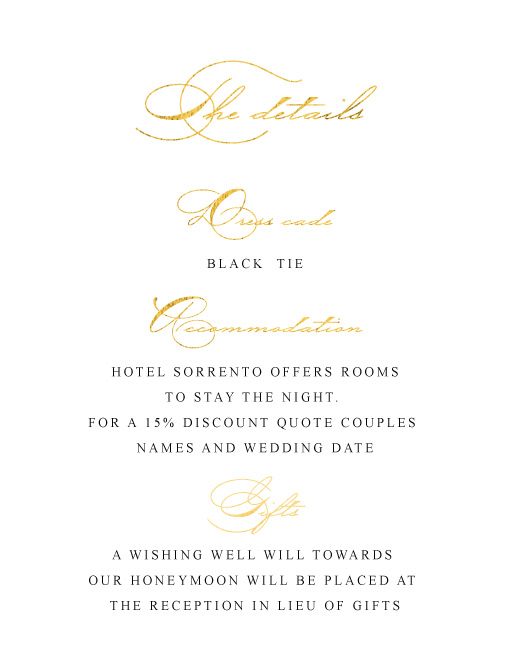 The details
Dress cade
BLACK TIE
Accommodation
HOTEL SORRENTO OFFERS ROOMS
TO STAY THE NIGHT.
FOR A 15% DISCOUNT QUOTE COUPLES
NAMES AND WEDDING DATE
Gifts
A WISHING WELL WILL TOWARDS
OUR HONEYMOON WILL BE PLACED AT
THE RECEPTION IN LIEU OF GIFTS